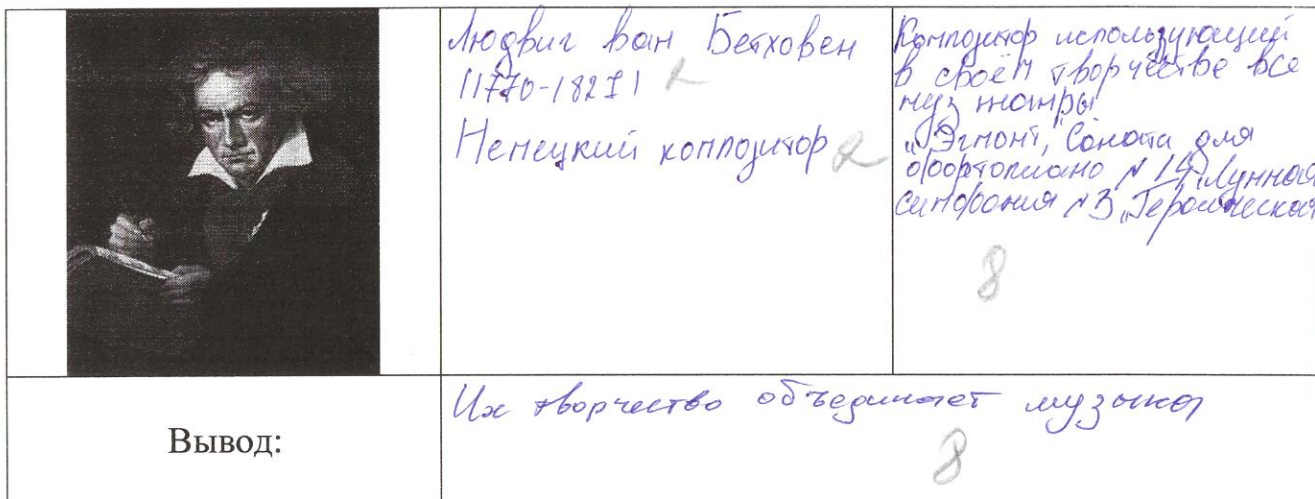 Людвиг ван Бетховен
(1770-1827) 2
Немецкий композитор 2
Композитор использующий
в своём творчестве все
муз жанры
„Эгмонт", Соната для
фортопиано №14„Лунная
симфония №3 „Героическая
8
Вывод:
Их творчество объединяет музыка
8